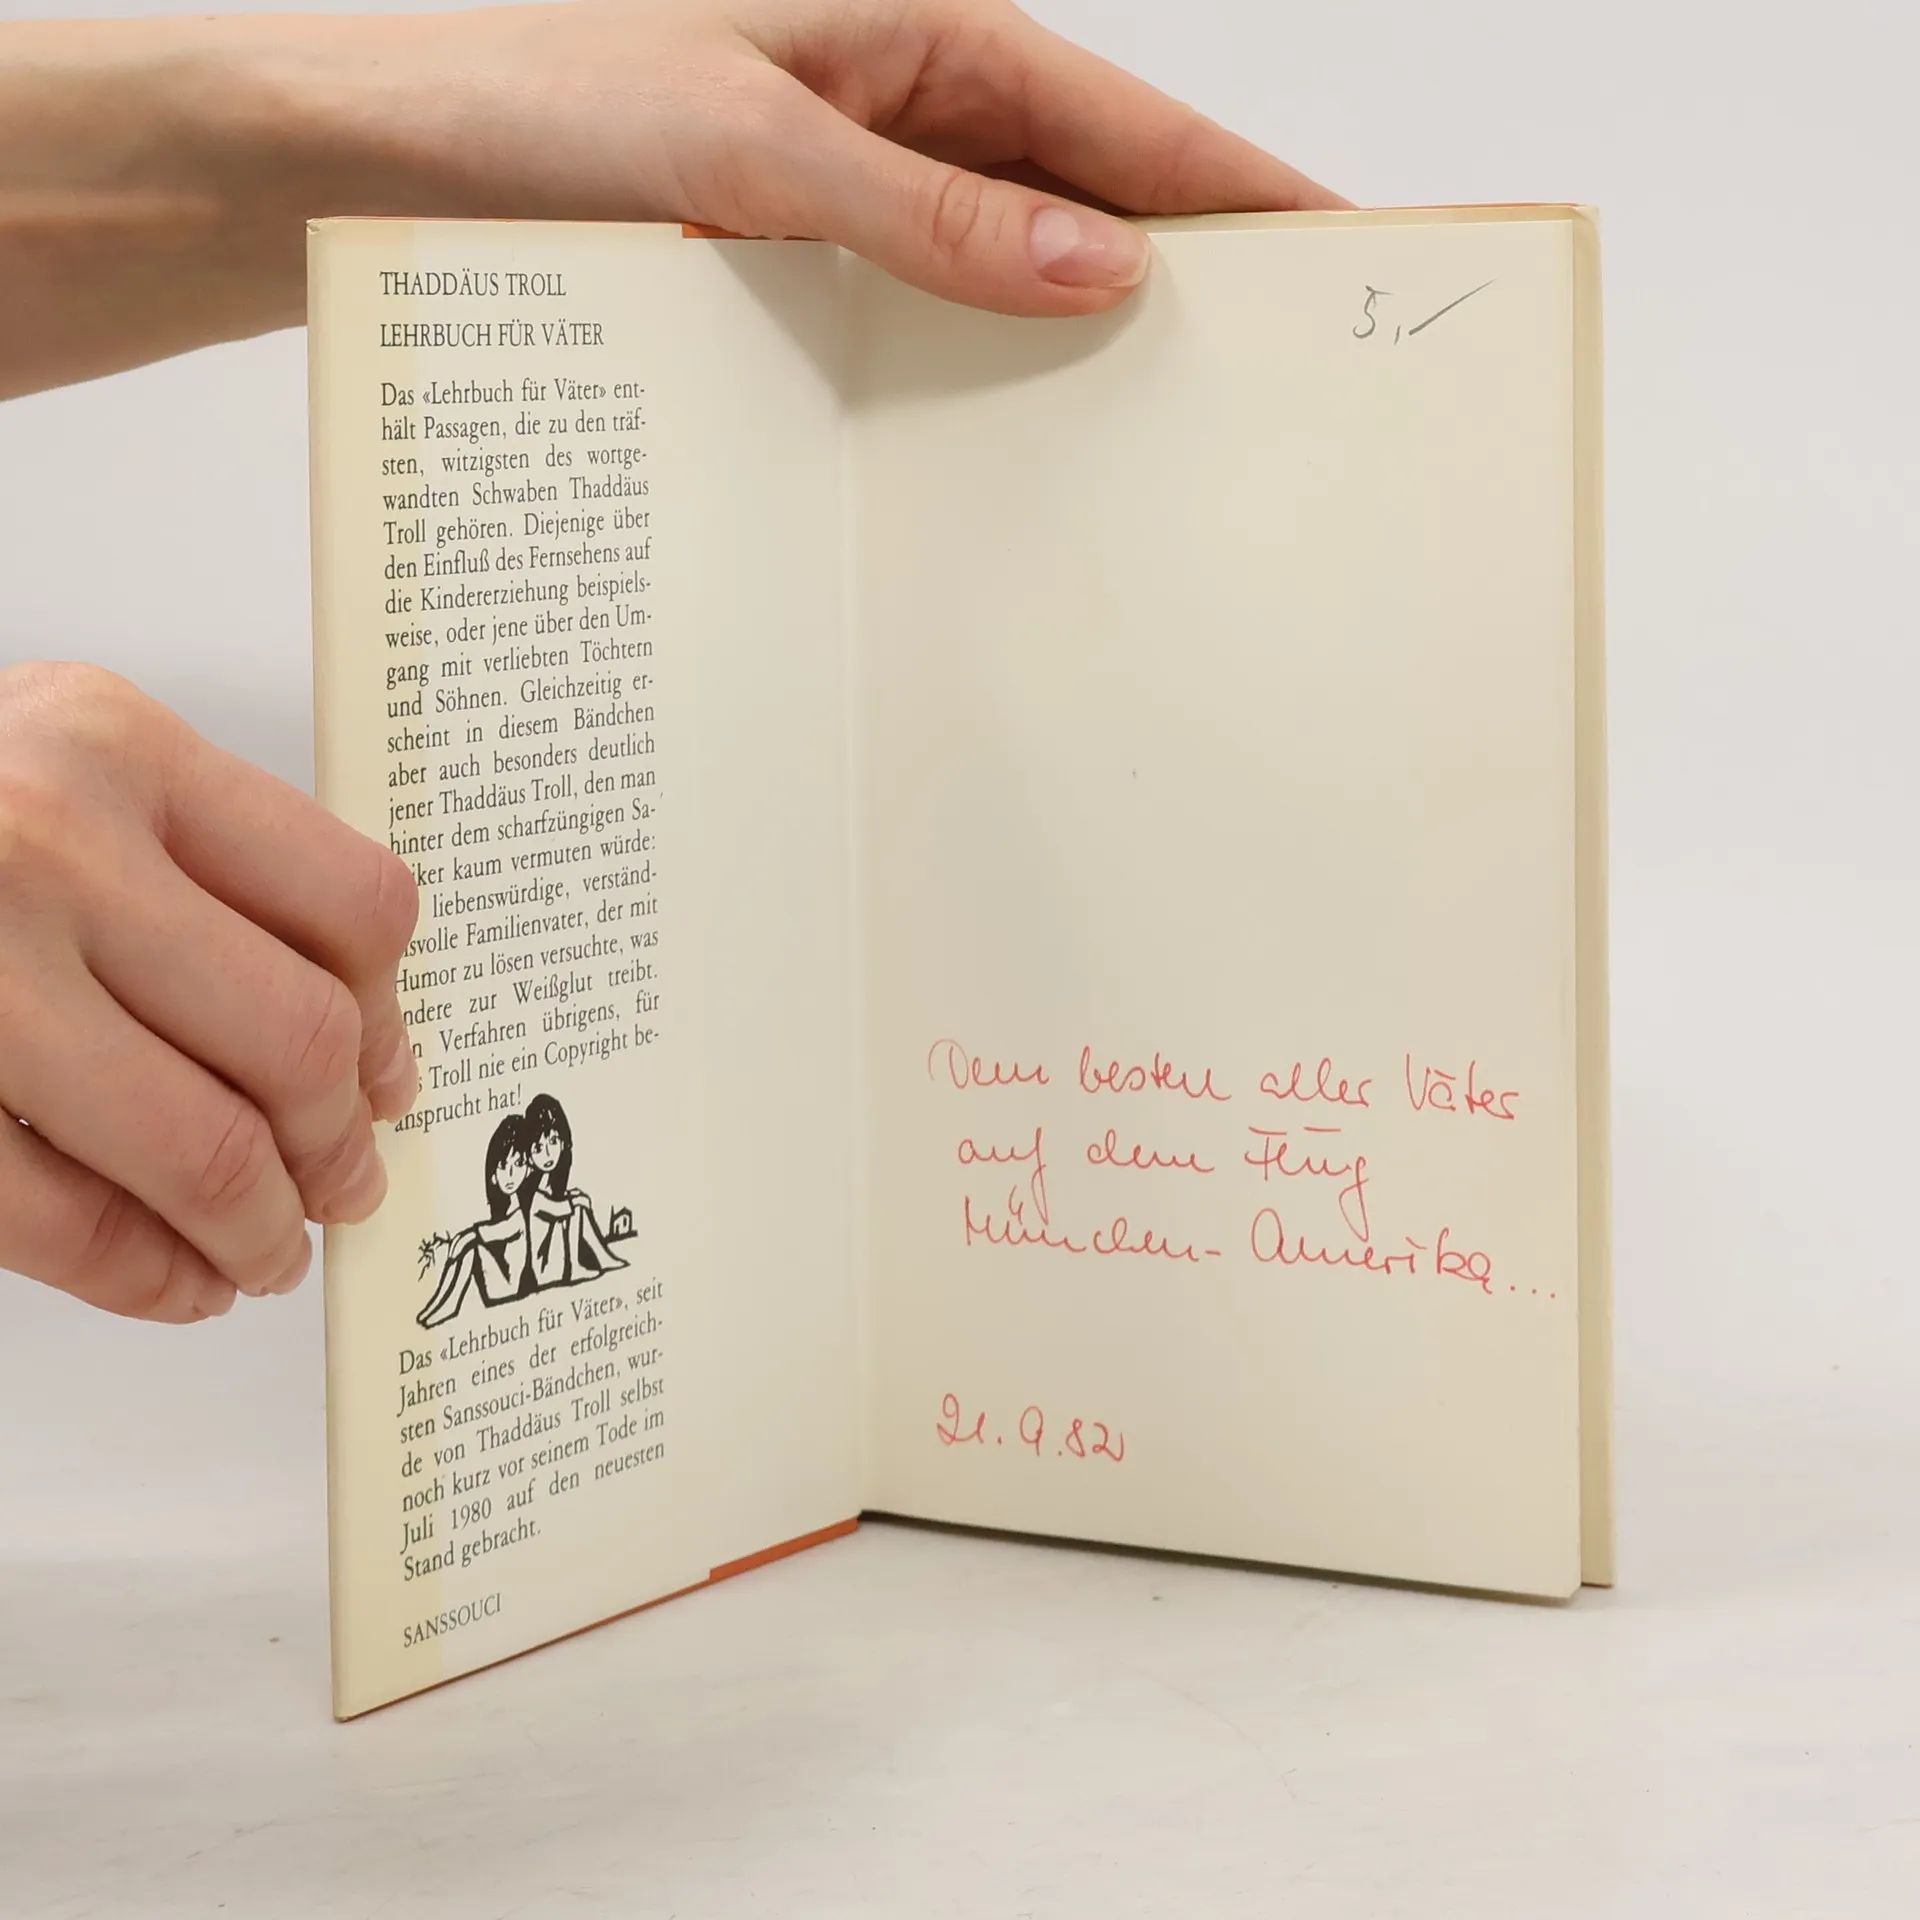 THADDÄUS TROLL
LEHRBUCH FÜR VÄTER
Das «Lehrbuch für Väter» ent-
hält Passagen, die zu den träf-
sten, witzigsten des wortge-
wandten Schwaben Thaddäus
Troll gehören. Diejenige über
den Einfluß des Fernsehens auf
die Kindererziehung beispiels-
weise, oder jene über den Um-
gang mit verliebten Töchtern
und Söhnen. Gleichzeitig er-
scheint in diesem Bändchen
aber auch besonders deutlich
jener Thaddäus Troll, den man
hinter dem scharfzüngigen Sa-
iker kaum vermuten würde:
liebenswürdige, verständ-
isvolle Familienvater, der mit
Humor zu lösen versuchte, was
ndere zur Weißglut treibt.
n Verfahren übrigens, für
s Troll nie ein Copyright be-
ansprucht hat!
Das «Lehrbuch für Väter», seit
Jahren eines der erfolgreich-
sten Sanssouci-Bändchen, wur-
de von Thaddäus Troll selbst
noch kurz vor seinem Tode im
Juli 1980 auf den neuesten
Stand gebracht.
SANSSOUCI
5,-
Dem besten aller Väter
auf dem Flug
München - Amerika...
21.9.82